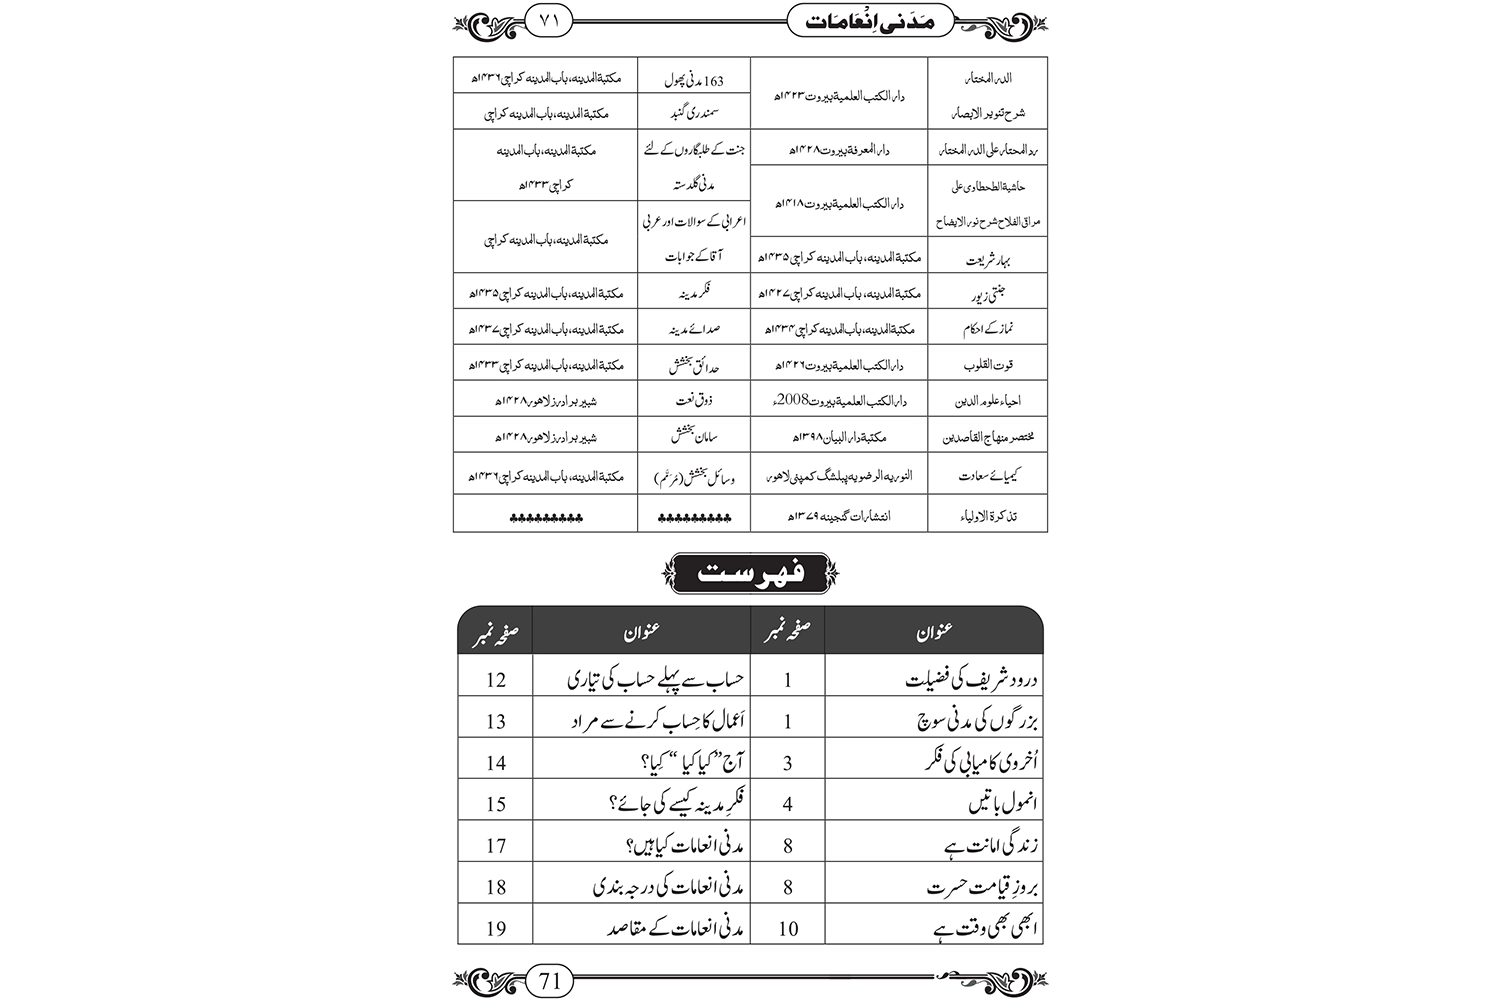 مَدَنی اِنْعَامَات
۷۱
الدر المختار
شرح تنویر الابصار
دار الکتب العلمیة بیروت ۱۴۲۳ھ
163 مدنی پھول
مکتبة المدینه، باب المدینه کراچی ۱۴۳۶ھ
سمندری گنبد
مکتبة المدینه، باب المدینه کراچی
رد المحتار علی الدر المختار
دار المعرفة بیروت ۱۴۲۸ھ
جنت کے طلبگاروں کے لئے
مدنی گلدستہ
مکتبة المدینه، باب المدینه
کراچی ۱۴۳۳ھ
حاشیة الطحطاوی علی
مراقی الفلاح شرح نور الایضاح
دار الکتب العلمیة بیروت ۱۴۱۸ھ
اعرابی کے سوالات اور عربی
آقا کے جوابات
مکتبة المدینه، باب المدینه کراچی
بہار شریعت
مکتبة المدینه، باب المدینه کراچی ۱۴۳۵ھ
جنتی زیور
مکتبة المدینه، باب المدینه کراچی ۱۴۲۷ھ
فکر مدینہ
مکتبة المدینه، باب المدینه کراچی ۱۴۳۵ھ
نماز کے احکام
مکتبة المدینه، باب المدینه کراچی ۱۴۳۴ھ
صدائے مدینہ
مکتبة المدینه، باب المدینه کراچی ۱۴۳۷ھ
قوت القلوب
دار الکتب العلمیة بیروت ۱۴۲۶ھ
حدائق بخشش
مکتبة المدینه، باب المدینه کراچی ۱۴۳۳ھ
احیاء علوم الدین
دار الکتب العلمیة بیروت 2008ء
ذوق نعت
شبیر برادرز لاهور ۱۴۲۸ھ
مختصر منهاج القاصدین
مکتبة دار البیان ۱۳۹۸ھ
سامان بخشش
شبیر برادرز لاهور ۱۴۲۸ھ
کیمیائے سعادت
النوریه الرضویه پبلشنگ کمپنی لاهور
وسائل بخشش (مُرَمَّم)
مکتبة المدینه، باب المدینه کراچی ۱۴۳۶ھ
تذکرة الاولیاء
انتشارات گنجینه ۱۳۷۹ھ
♣♣♣♣♣♣♣♣♣
♣♣♣♣♣♣♣♣♣
فہرست
عنوان صفحہ نمبر عنوان صفحہ نمبر
درود شریف کی فضیلت 1 حساب سے پہلے حساب کی تیّاری 12
بزرگوں کی مدنی سوچ 1 اَعمال کا حِساب کرنے سے مراد 13
اُخروی کامیابی کی فکر 3 آج ”کیا کیا“ کِیا؟ 14
انمول باتیں 4 فکرِ مدینہ کیسے کی جائے؟ 15
زندگی امانت ہے 8 مدنی انعامات کیا ہیں؟ 17
بروزِ قیامت حسرت 8 مدنی انعامات کی درجہ بندی 18
ابھی بھی وقت ہے 10 مدنی انعامات کے مقاصد 19
71